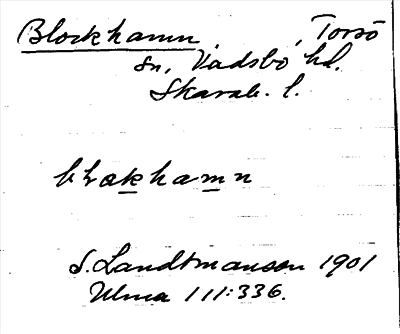 Blockhamn, Torsö
sn, Vadsbo hd.
Skarab. l.
blakhamn
S. Landtmanson 1901
Ulma 111:336.